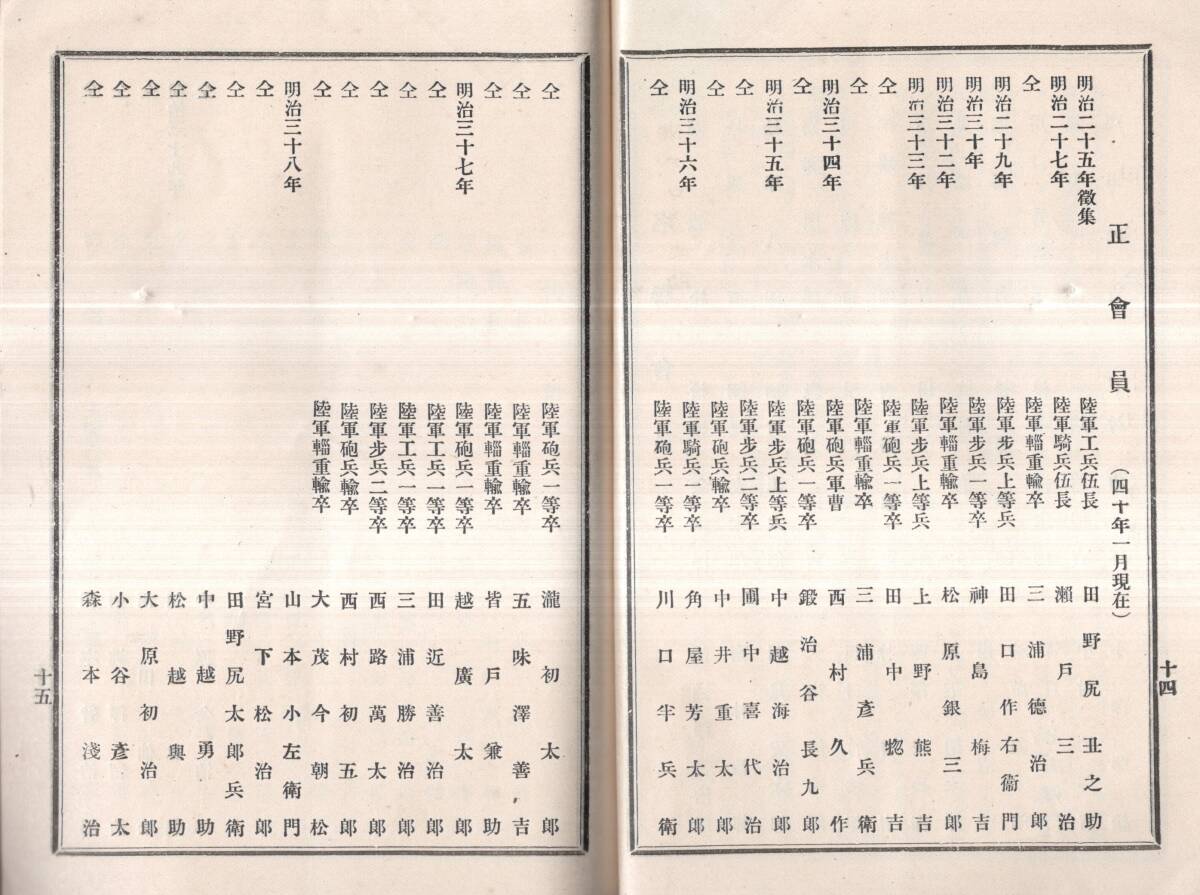 正會員 (四十年一月現在)
明治二十五年徵集 陸軍工兵伍長 田野尻丑之助
明治二十七年 陸軍騎兵伍長 瀨戶三治
仝 陸軍輜重輸卒 三浦德治郎
明治二十九年 陸軍步兵上等兵 田口作右衞門
明治三十年 陸軍步兵一等卒 神島梅吉
明治三十二年 陸軍輜重輸卒 松原銀三郎
明治三十三年 陸軍步兵上等兵 上野熊吉
仝 陸軍砲兵一等卒 田中惣吉
仝 陸軍輜重輸卒 三浦彥兵衛
明治三十四年 陸軍砲兵軍曹 西村久作
仝 陸軍砲兵一等卒 鍛治谷長九郎
明治三十五年 陸軍步兵上等兵 中越海治郎
仝 陸軍步兵二等卒 圃中喜代治
仝 陸軍砲兵輸卒 中井重太郎
明治三十六年 陸軍騎兵一等卒 角屋芳太郎
仝 陸軍砲兵一等卒 川口半兵衛
十四
仝 陸軍砲兵一等卒 瀧初太郎
仝 陸軍輜重輸卒 五味澤善吉
仝 陸軍輜重輸卒 皆戶兼助
明治三十七年 陸軍砲兵一等卒 越廣太郎
仝 陸軍工兵一等卒 田近善治郎
仝 陸軍工兵一等卒 三浦勝治郎
仝 陸軍步兵二等卒 西路萬太郎
仝 陸軍砲兵輸卒 西村初五郎
仝 陸軍輜重輸卒 大茂今朝松
明治三十八年 山本小左衛門
仝 宮下松治郎
仝 田野尻太郎兵衛
仝 中越勇助
仝 松越與助
仝 大原初治郎
仝 小谷彥太
仝 森本淺治
十五